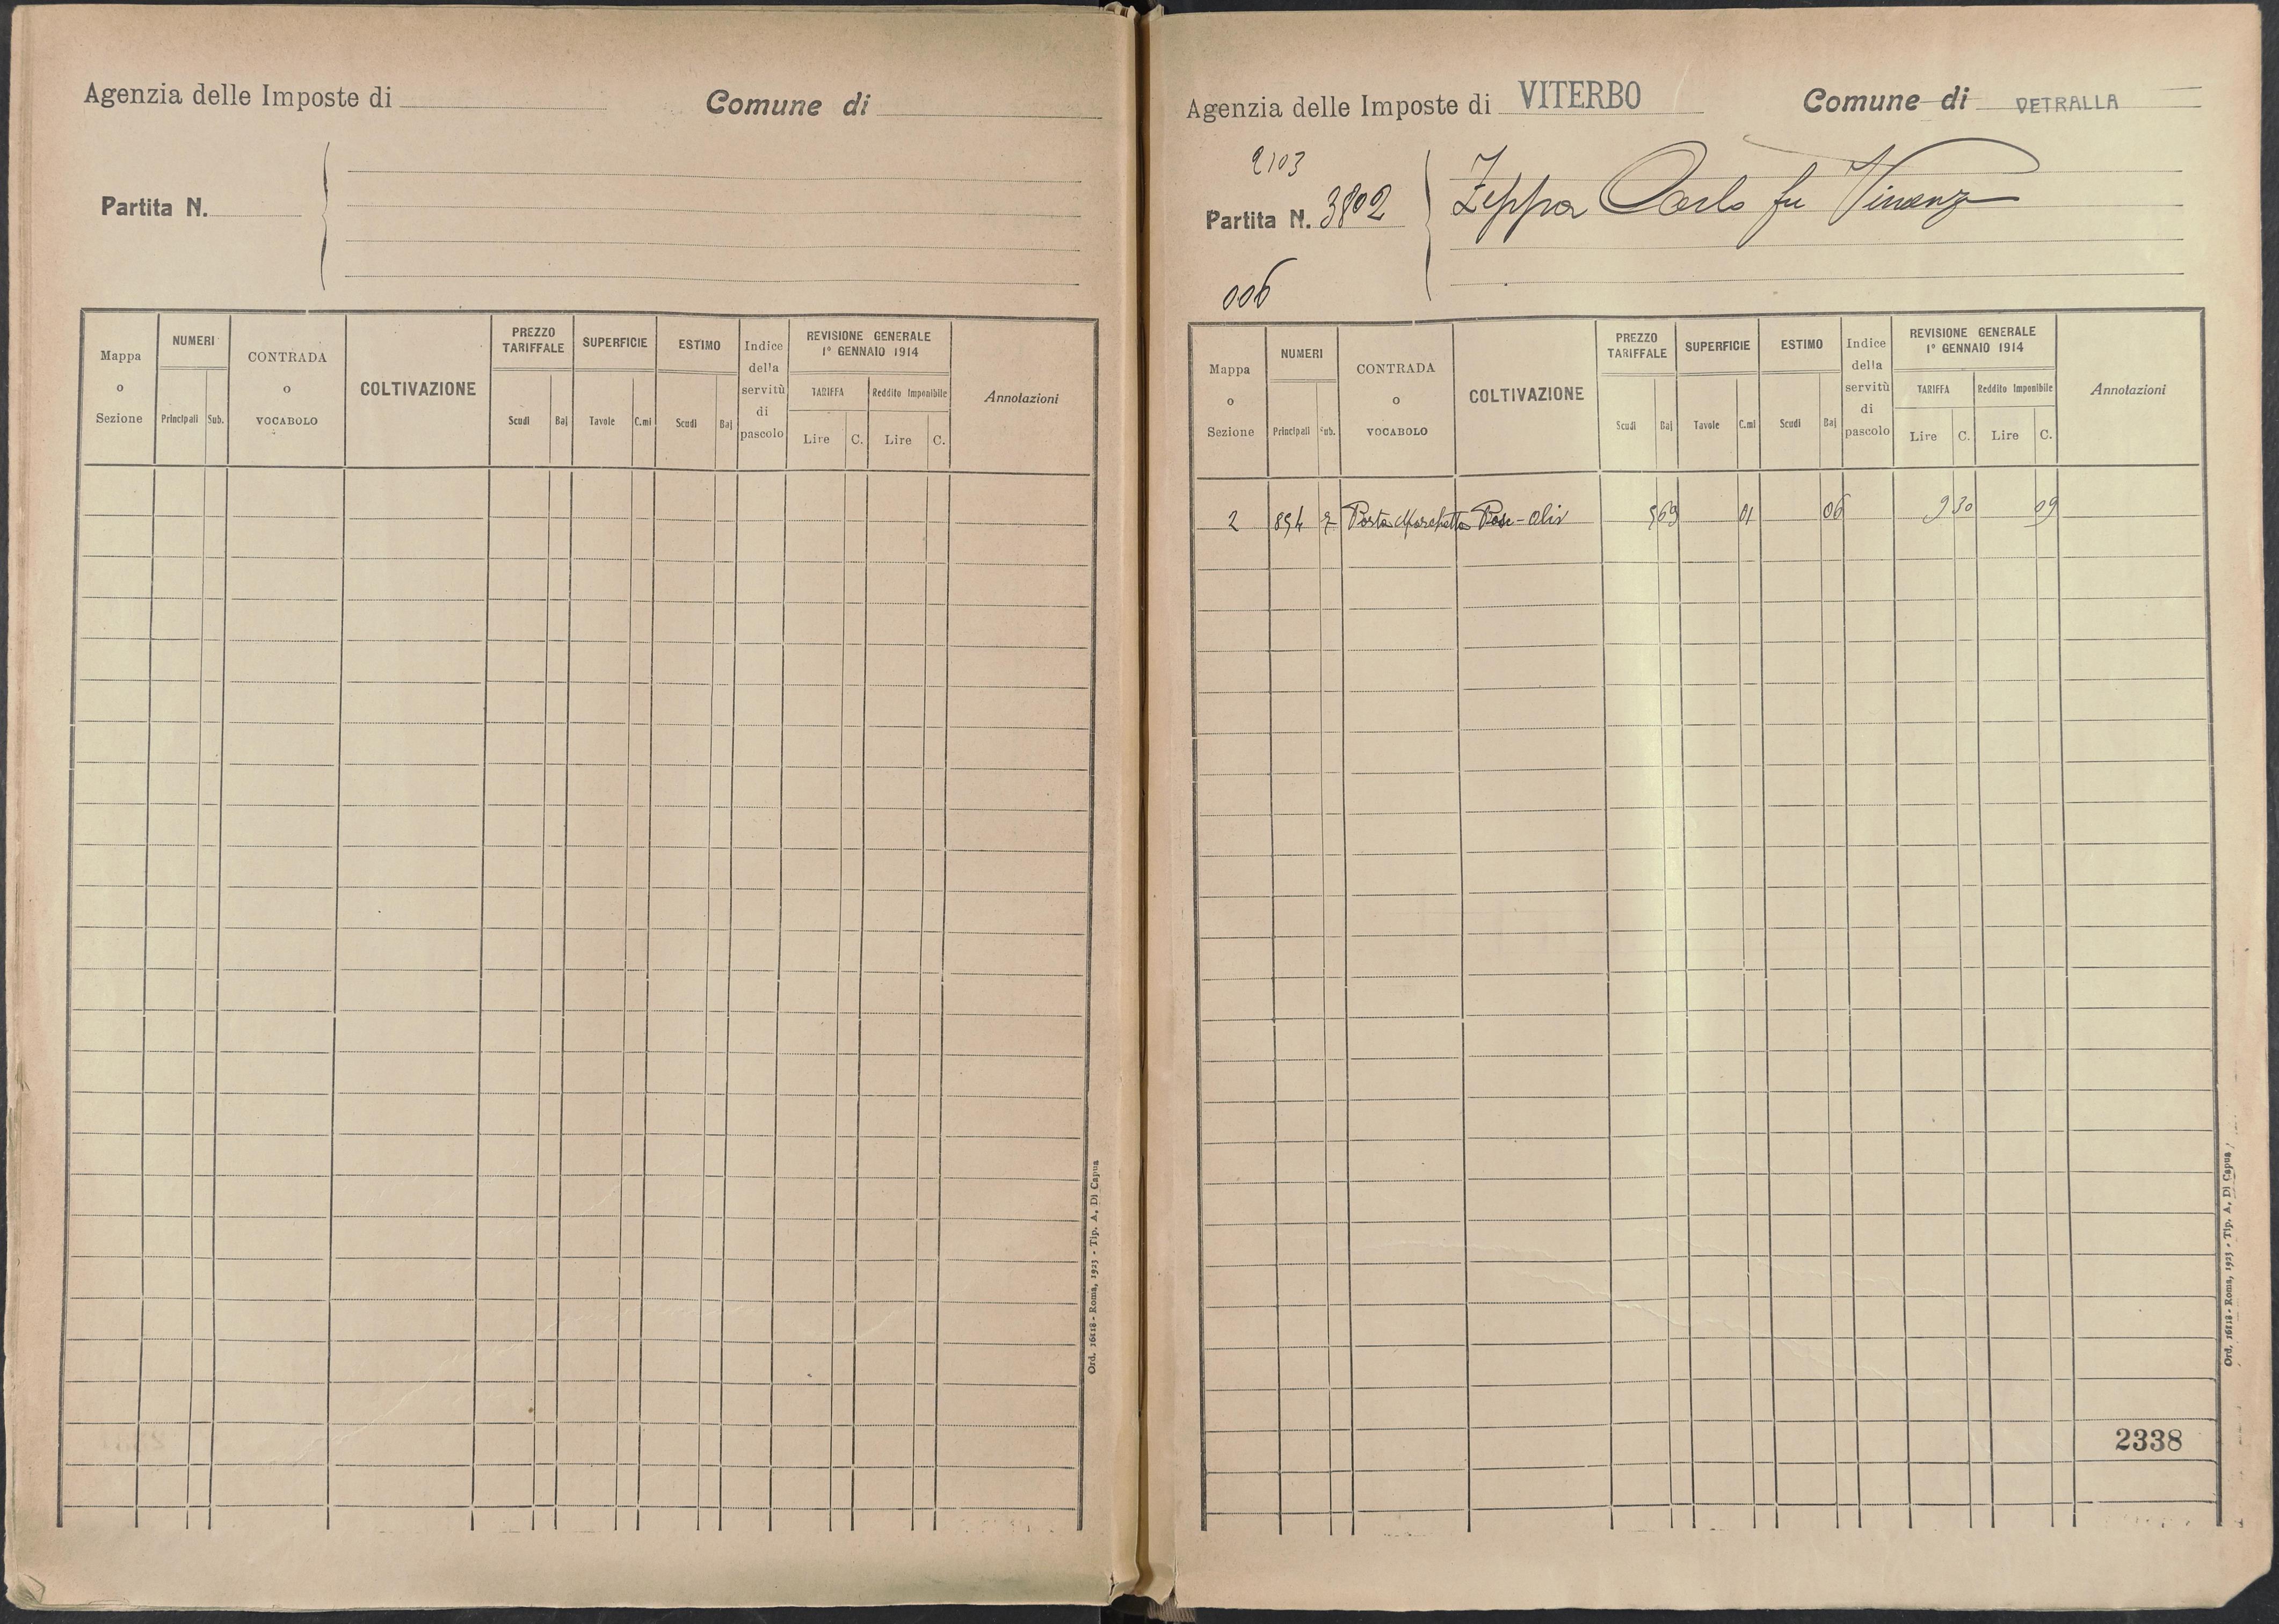 Agenzia delle Imposte di
Comune di
Partita N.
Mappa o Sezione
NUMERI
Principali Sub.
CONTRADA o VOCABOLO
COLTIVAZIONE
PREZZO TARIFFALE
Scudi Baj
SUPERFICIE
Tavole C.mi
ESTIMO
Scudi Baj
Indice della servitù di pascolo
REVISIONE GENERALE
1° GENNAIO 1914
TARIFFA
Lire C.
Reddito Imponibile
Lire C.
Annotazioni
Ord. 16118 - Roma, 1923 - Tip. A. Di Capua
Agenzia delle Imposte di VITERBO
Comune di VETRALLA
2103
Partita N. 3802
Zeppa Carlo fu Vincenzo
006
Mappa o Sezione
NUMERI
Principali Sub.
CONTRADA o VOCABOLO
COLTIVAZIONE
PREZZO TARIFFALE
Scudi Baj
SUPERFICIE
Tavole C.mi
ESTIMO
Scudi Baj
Indice della servitù di pascolo
REVISIONE GENERALE
1° GENNAIO 1914
TARIFFA
Lire C.
Reddito Imponibile
Lire C.
Annotazioni
2 894 Porta Marchetta Pasc-Oliv 5 69 01 06 9 30 09
2338
Ord. 16118 - Roma, 1923 - Tip. A. Di Capua